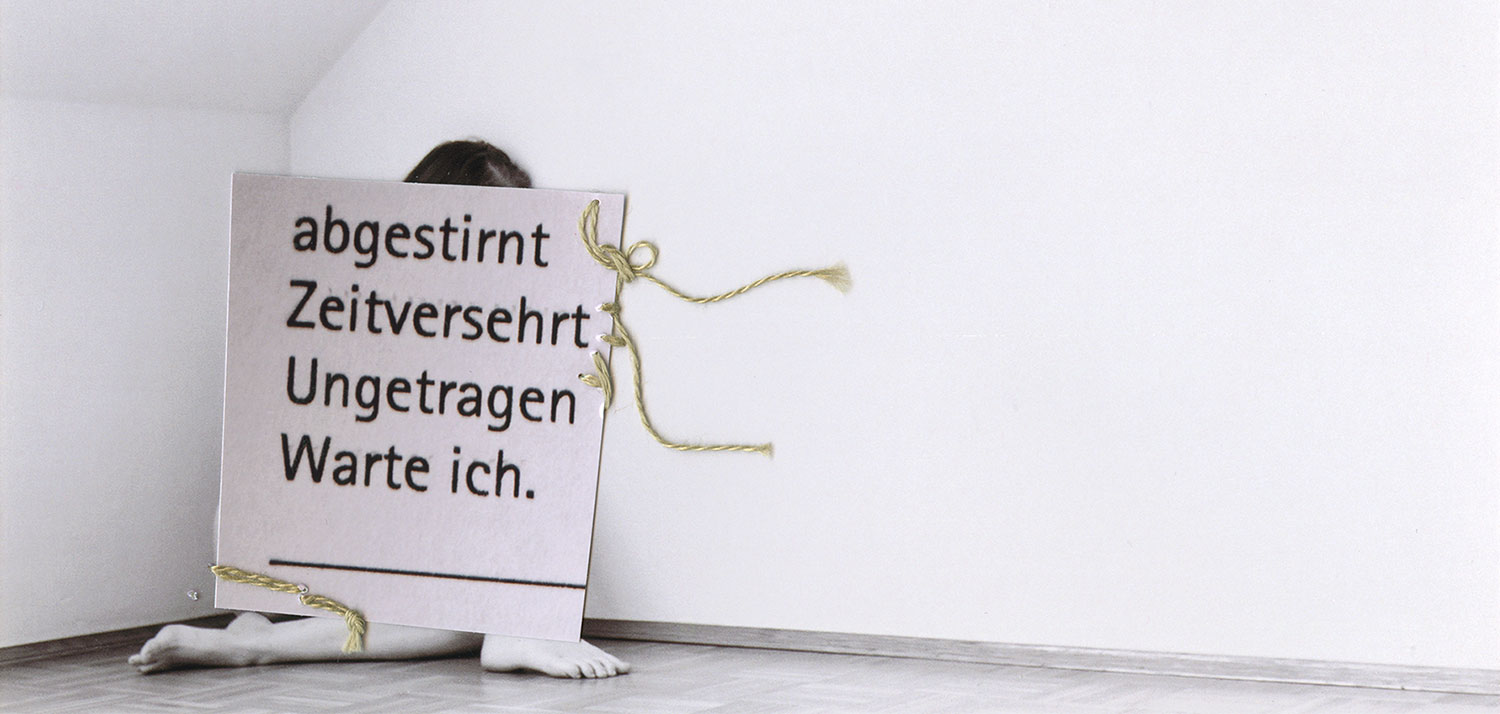 abgestirnt
Zeitversehrt
Ungetragen
Warte ich.